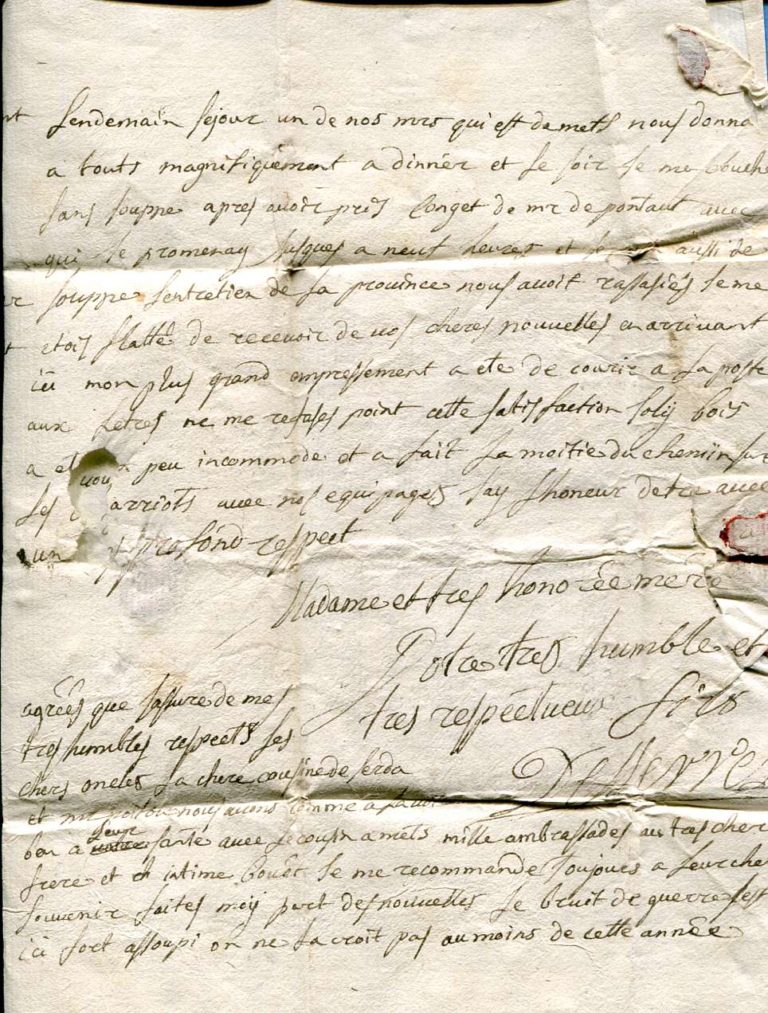 Lendemain sejour un de nos mrs qui est de mets nous donna
a touts magnifiquement a dinner et le soir Je me couche
sans souppe apres avoir pris Conget de mr de pontaut avec
qui Je promenay Jusques a neuf heures et aussi de
souppe Lentretien de La province nous avoit rassasiés Je me
etois flatté de recevoir de vos cheres nouvelles en arrivant
ici mon plus grand empressement a ete de courir a La poste
aux Letres ne me refuses point cette satisfaction Joly bois
a et un peu incommode et a fait La moitie du chemin sur
Les arriots avec nos equipages Jay Lhoneur detre avec
un profond respect
Madame et tres honorée mere
Votre tres humble et
tres respectueux fils
agrées que Jassure de mes
tres humbles respects Les
chers oncles La chere cousine de
et mr poitou nous avons comme a
beu a Leur sante avec Le cousin a mets mille ambrassades au tres cher
frere et intime bouër Je me recommande toujours a Leur cher
souvenir faites moy part des nouvelles Le bruit de guerre est
ici fort assoupi on ne La croit pas au moins de cette année